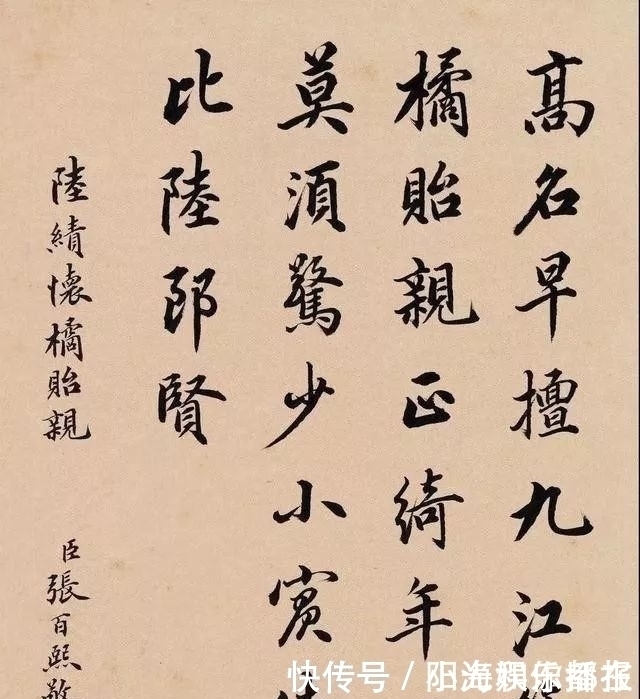 高名早擅九江
橘貽親正綺年
莫須驚少小賓
比陸郎賢
陸績懷橘貽親
臣張百熙敬
快传号/阳海